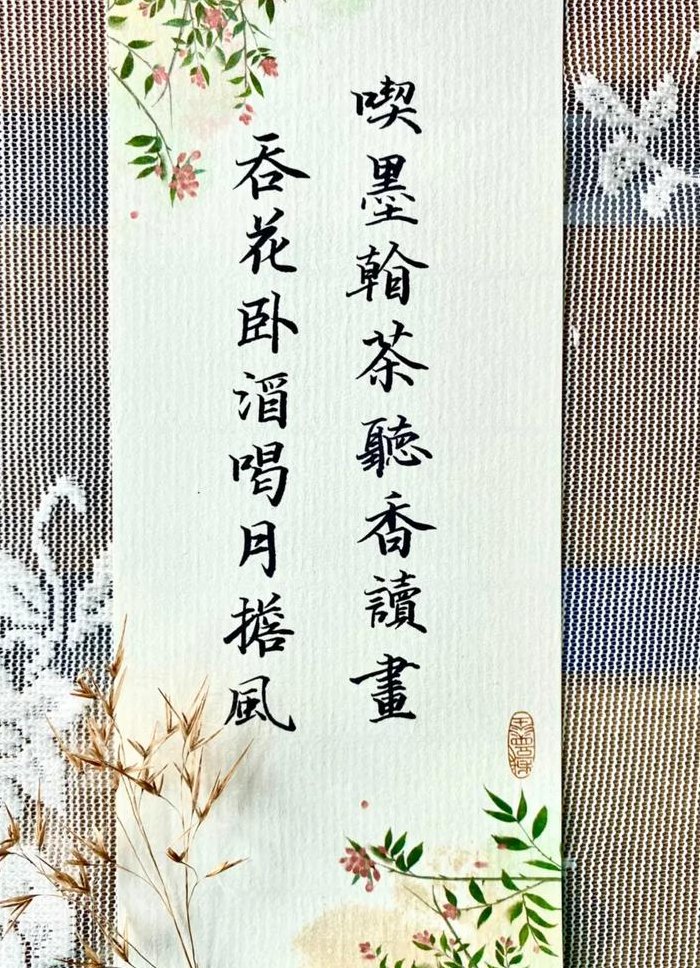 喫墨看茶聽香讀畫
吞花卧酒喝月擔風